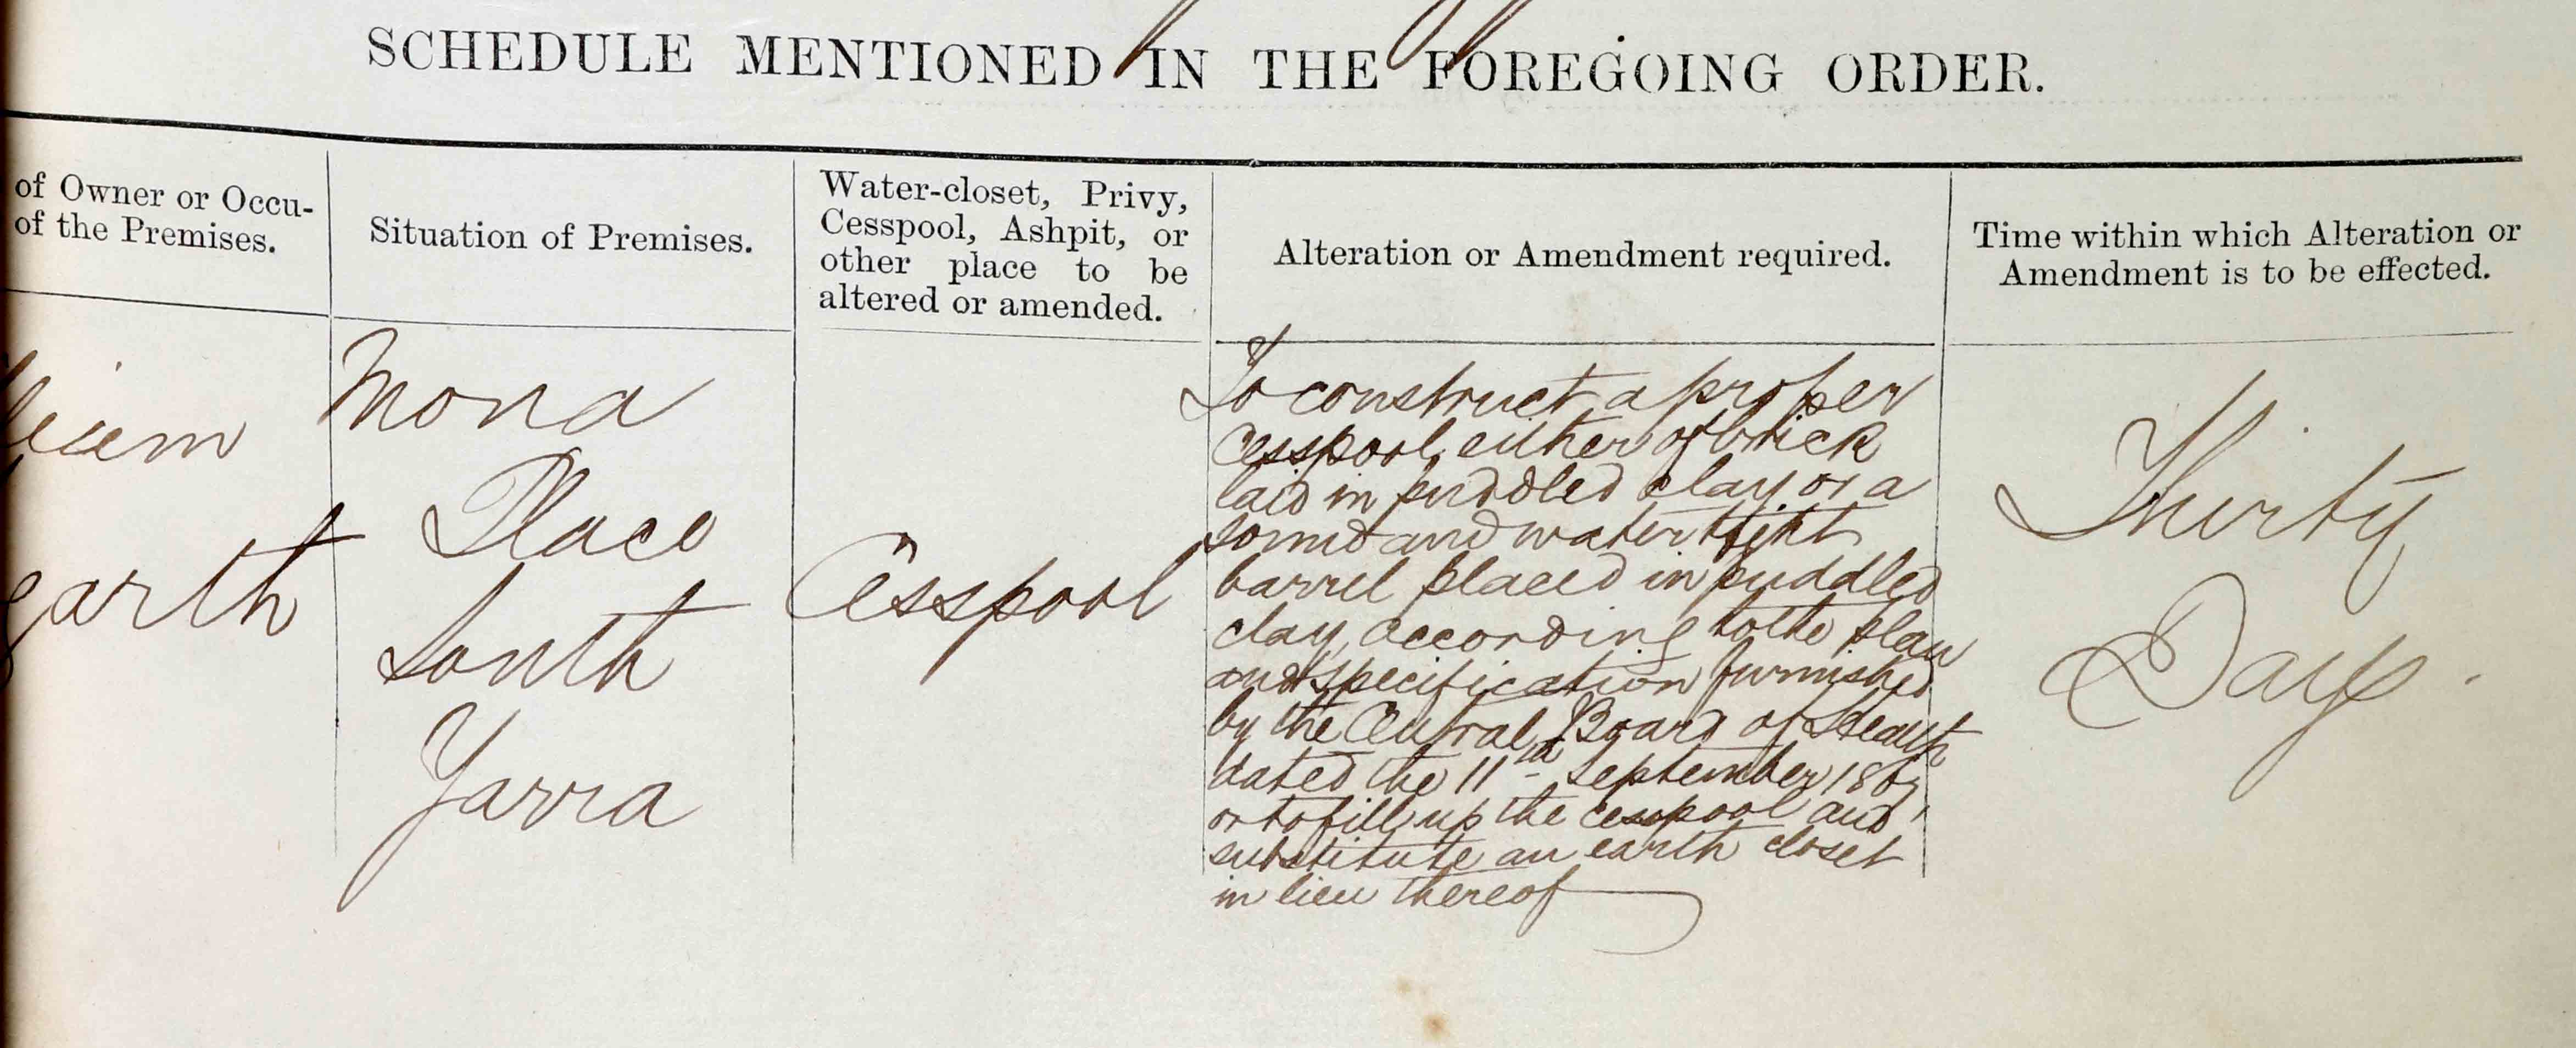 SCHEDULE MENTIONED IN THE FOREGOING ORDER.
of Owner or Occu-
of the Premises.
Situation of Premises.
Water-closet, Privy,
Cesspool, Ashpit, or
other place to be
altered or amended.
Alteration or Amendment required.
Time within which Alteration or
Amendment is to be effected.
liam
garth
Mona
Place
South
Yarra
Cesspool
To construct a proper
Cesspool, either of brick
laid in puddled clay or a
sound and water tight
barrel placed in puddled
clay, according to the plan
and specification furnished
by the Central Board of Health
dated the 11th September 1867
or to fill up the cesspool and
substitute an earth closet
in lieu thereof
Thirty
Days.